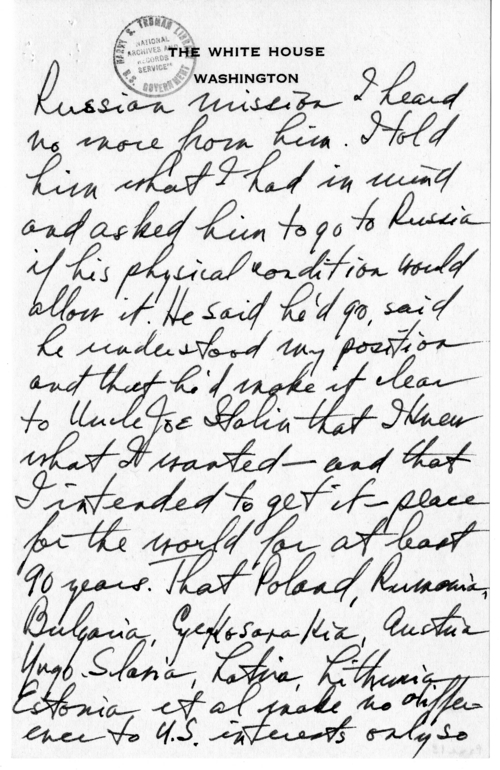 HARRY S. TRUMAN LIBRARY
"NATIONAL
ARCHIVES AND
RECORDS
SERVICE"
U.S. GOVERNMENT
THE WHITE HOUSE
WASHINGTON
Russian mission I heard
no more from him. I told
him what I had in mind
and asked him to go to Russia
if his physical condition would
allow it. He said he'd go, said
he understood my position
and that he'd make it clear
to Uncle Joe Stalin that I knew
what I wanted — and that
I intended to get it — peace
for the world for at least
90 years. That Poland, Rumania,
Bulgaria, Czekosovakia, Austria
Yugo-Slavia, Latvia, Lithunia,
Estonia et al make no differ-
ence to U.S. interests only so